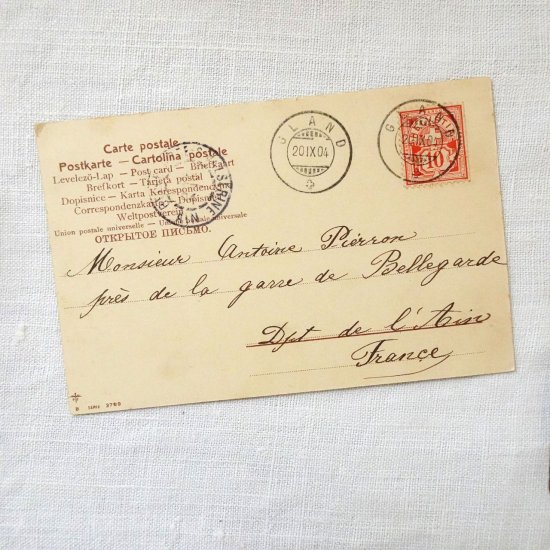 Carte postale
Postkarte — Cartolina postale
Levelező-Lap — Post card — Briefkaart
Brefkort — Tarjeta postal
Dopisnice — Karta Korespondencyjna
Correspondenzkarte — Dopisnica
Weltpostverein
Union postale universelle — Union postale universale
ОТКРЫТОЕ ПИСЬМО.
GLAND
20 IX 04
GLAND
20 IX 04
10
Monsieur Antoine Piérron
près de la garre de Bellegarde
Dpt de l'Ain
France
B SERIE 2790